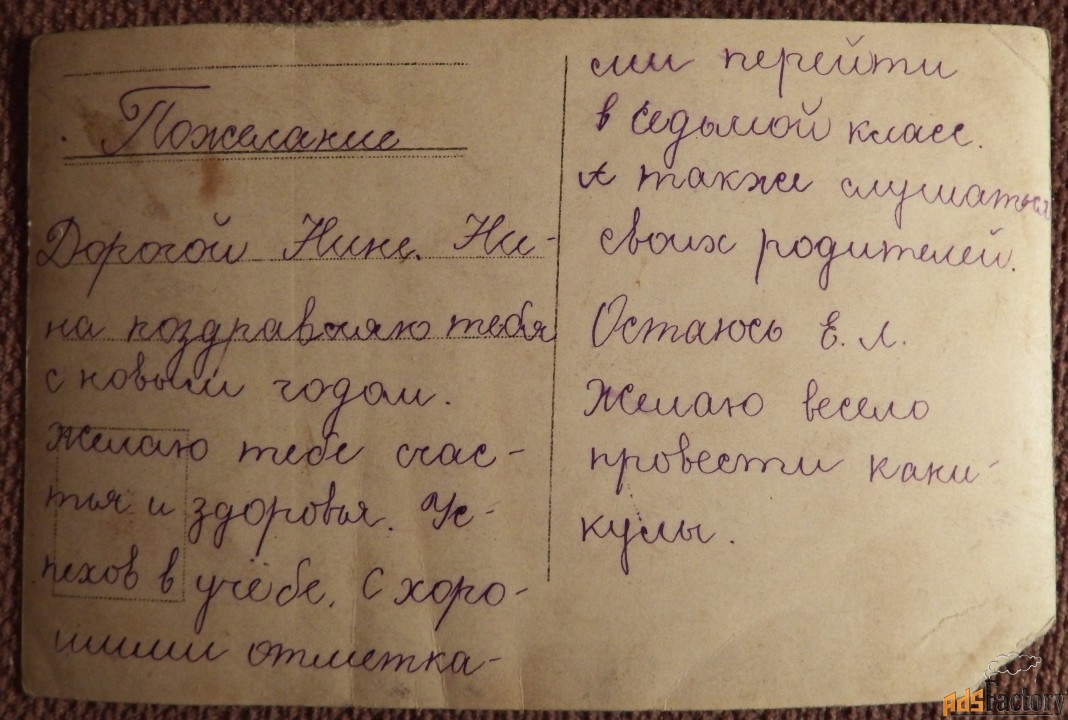 Пожелание
Дорогой Нине. Ни-
на поздравляю тебя
с новым годом.
Желаю тебе счас-
тья и здоровья. Ус-
пехов в учёбе. С хоро-
шими отметка-
ми перейти
в седьмой класс.
А также слушаться
своих родителей.
Остаюсь Е. Л.
Желаю весело
провести кани-
кулы.
AdsFactory